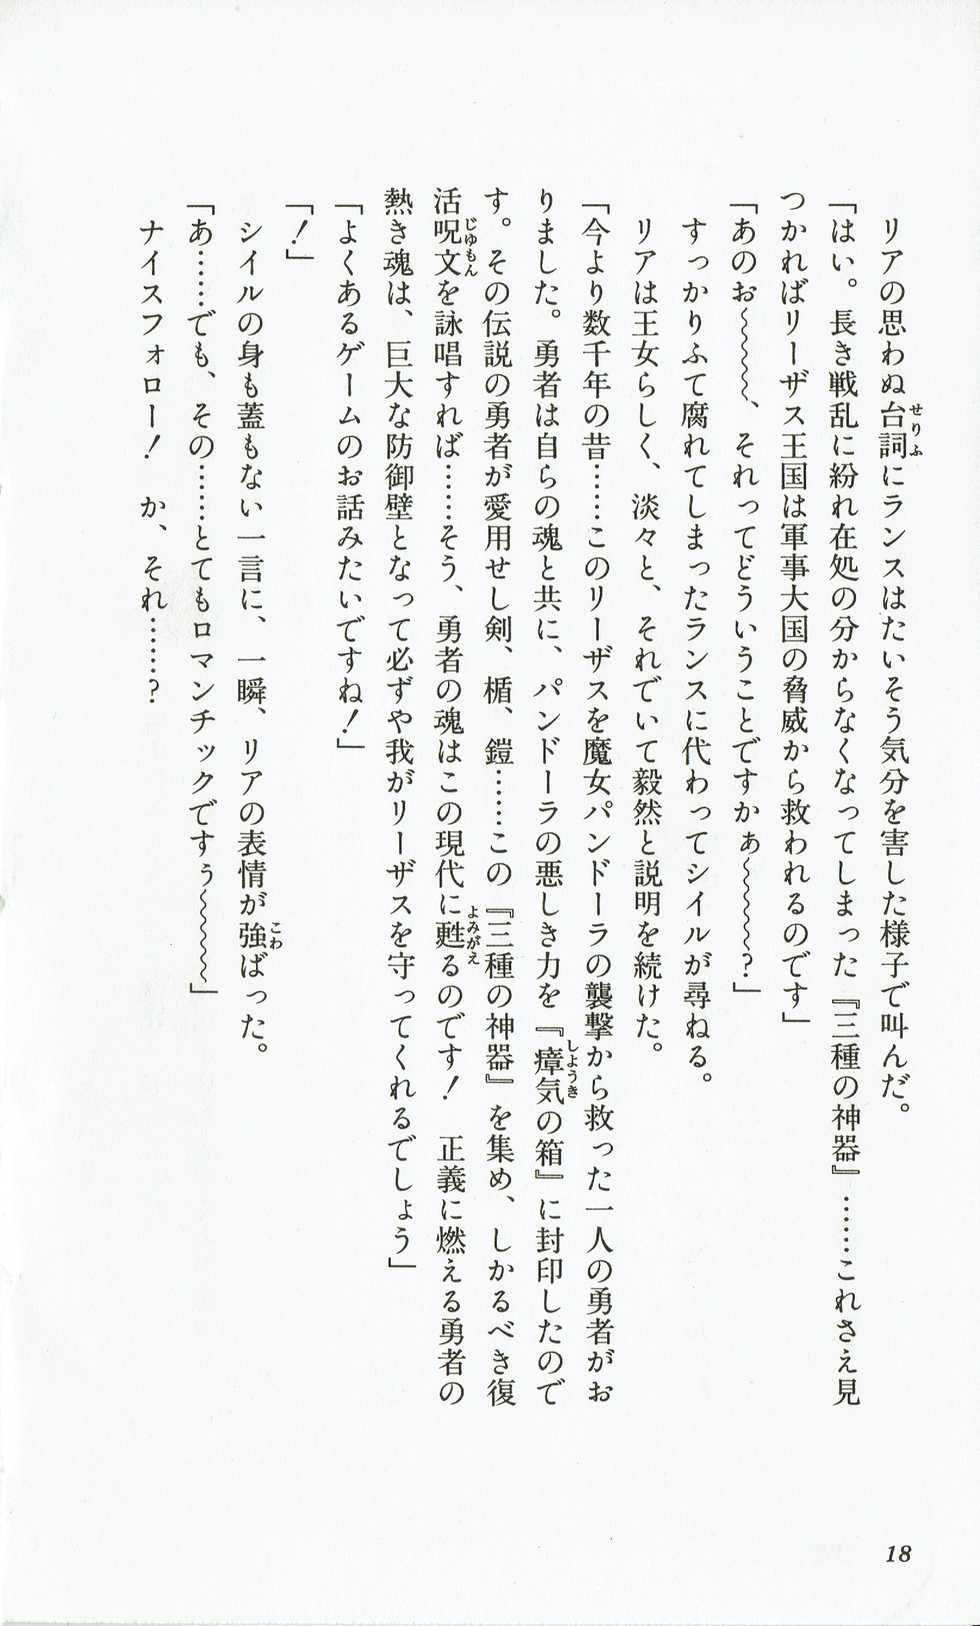 リアの思わぬ台詞にランスはたいそう気分を害した様子で叫んだ。
「はい。長き戦乱に紛れ在処の分からなくなってしまった『三種の神器』……これさえ見
つかればリーザス王国は軍事大国の脅威から救われるのです」
「あのお〜〜〜〜、それってどういうことですかぁ〜〜〜〜？」
すっかりふて腐れてしまったランスに代わってシイルが尋ねる。
リアは王女らしく、淡々と、それでいて毅然と説明を続けた。
「今より数千年の昔……このリーザスを魔女パンドーラの襲撃から救った一人の勇者がお
りました。勇者は自らの魂と共に、パンドーラの悪しき力を『瘴気の箱』に封印したので
す。その伝説の勇者が愛用せし剣、楯、鎧……この『三種の神器』を集め、しかるべき復
活呪文を詠唱すれば……そう、勇者の魂はこの現代に甦るのです！　正義に燃える勇者の
熱き魂は、巨大な防御壁となって必ずや我がリーザスを守ってくれるでしょう」
「よくあるゲームのお話みたいですね！」
「！」
シイルの身も蓋もない一言に、一瞬、リアの表情が強ばった。
「あ……でも、その……とてもロマンチックですぅ〜〜〜〜」
ナイスフォロー！　か、それ……？
18